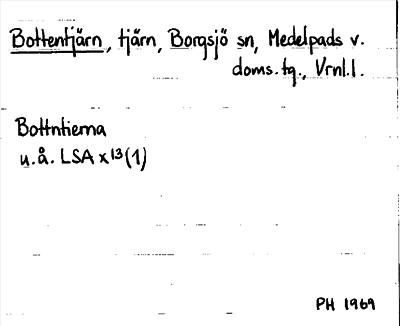 Bottentjärn, tjärn, Borgsjö sn, Medelpads v.
doms.tg., Vrnl.l.
Bottntierna
u.å. LSA x¹³(1)
PH 1969